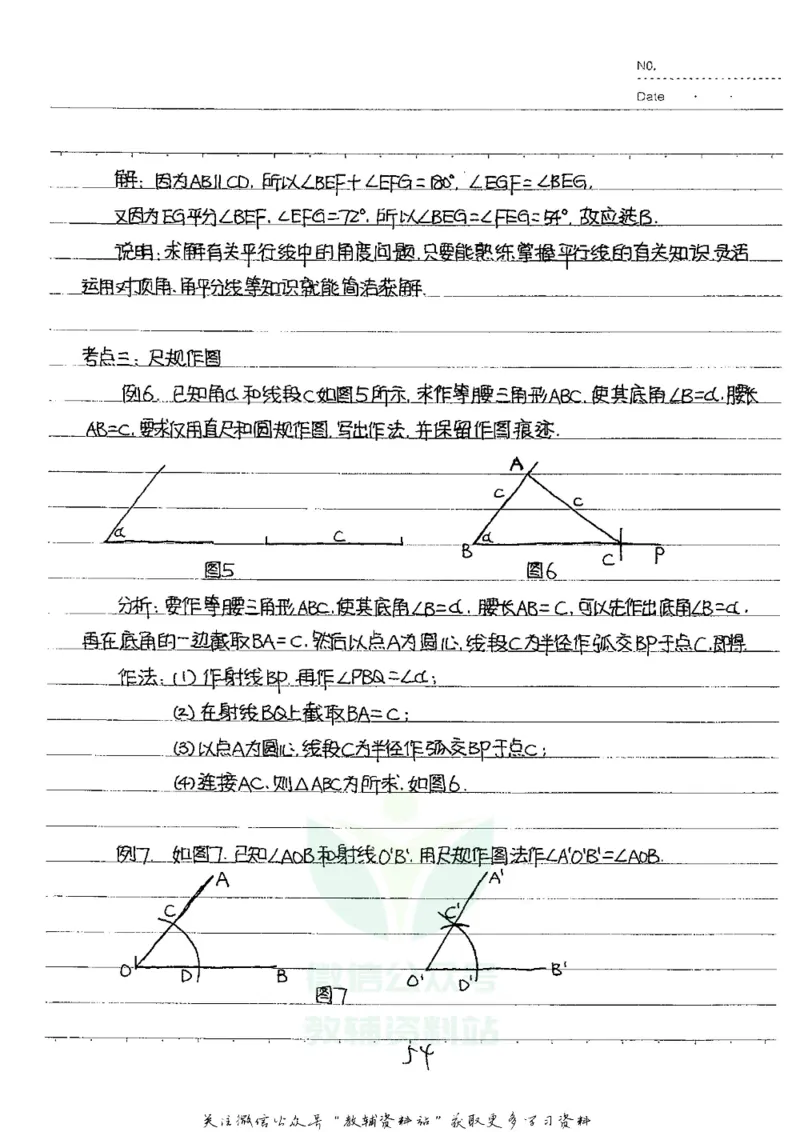 NO.
Date
解: 因为AB∥CD, 所以∠BEF+∠EFG=180°, ∠EGF=∠BEG,
又因为EG平分∠BEF, ∠EFG=72°, 所以∠BEG=∠FEG=54°, 故应选B.
说明: 求解有关平行线中的角度问题, 只要能熟练掌握平行线的有关知识, 灵活
运用对顶角、角平分线等知识就能简洁获解.
考点三: 尺规作图
例6. 已知角α和线段c如图5所示, 求作等腰三角形ABC, 使其底角∠B=α, 腰长
AB=c, 要求仅用直尺和圆规作图, 写出作法, 并保留作图痕迹.
α c
图5
A c c B α C P
图6
分析: 要作等腰三角形ABC, 使其底角∠B=α, 腰长AB=c, 可以先作出底角∠B=α,
再在底角的一边截取BA=c, 然后以点A为圆心, 线段c为半径作弧交BP于点C, 即得.
作法: (1) 作射线BP, 再作∠PBQ=∠α;
(2) 在射线BQ上截取BA=c;
(3) 以点A为圆心, 线段c为半径作弧交BP于点C;
(4) 连接AC, 则△ABC为所求, 如图6.
例7. 如图7, 已知∠AOB和射线O'B', 用尺规作图法作∠A'O'B'=∠AOB.
A C O D B
A' C' O' D' B'
图7
微信公众号
教辅资料站
54
关注微信公众号"教辅资料站"获取更多学习资料